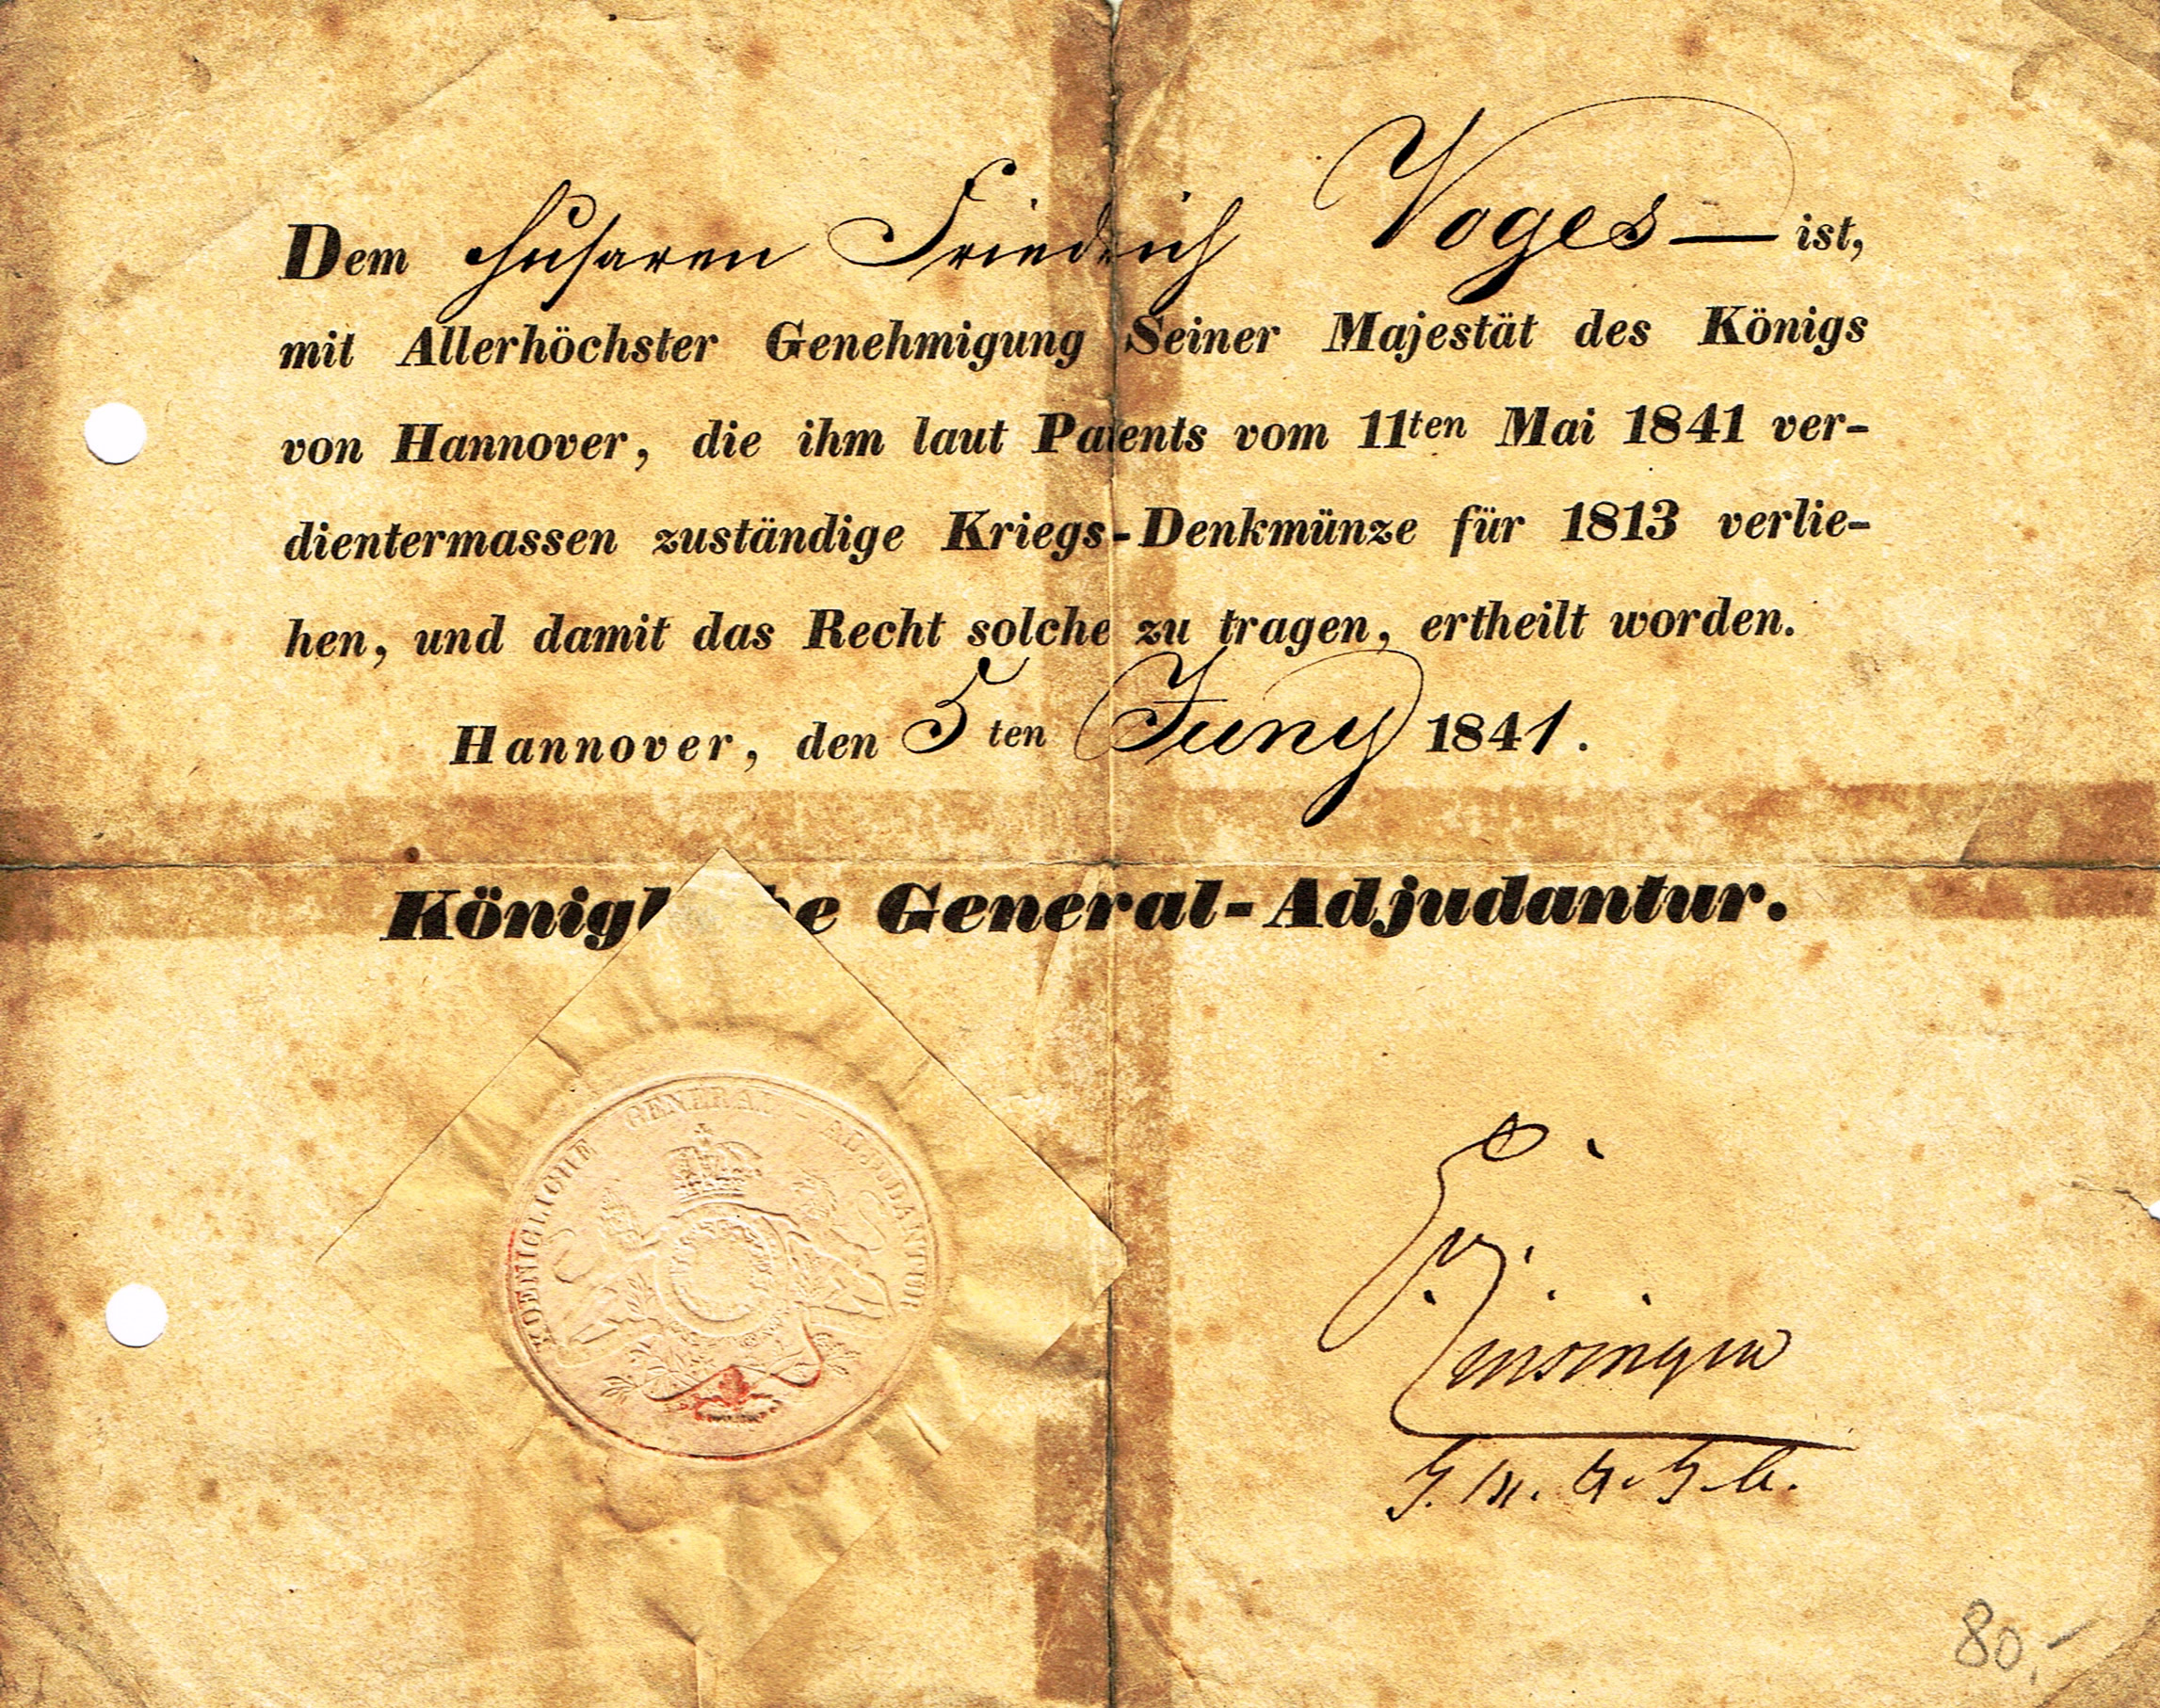 Dem Husaren Friedrich Voges — ist,
mit Allerhöchster Genehmigung Seiner Majestät des Königs
von Hannover, die ihm laut Patents vom 11ten Mai 1841 ver-
dientermassen zuständige Kriegs-Denkmünze für 1813 verlie-
hen, und damit das Recht solche zu tragen, ertheilt worden.
Hannover, den 5ten Juny 1841.
Königliche General-Adjudantur.
KOENIGLICHE GENERAL-ADJUDANTUR
80,-